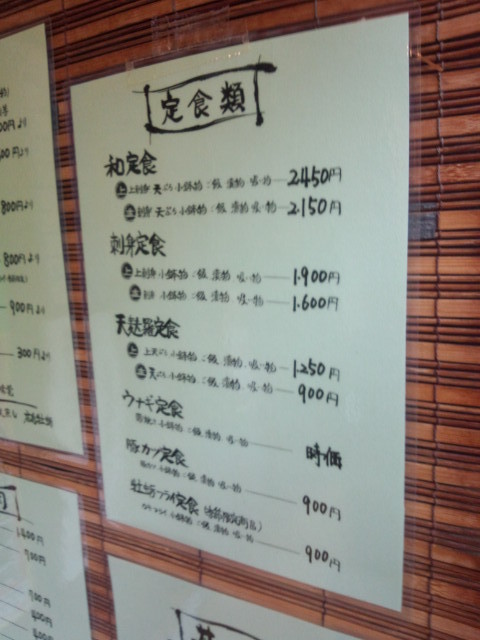 定食類
和定食
上 上刺身 天ぷら 小鉢物 ご飯 漬物 吸い物 2.450円
並 刺身 天ぷら 小鉢物 ご飯 漬物 吸い物 2.150円
刺身定食
上 上刺身 小鉢物 ご飯 漬物 吸い物 1.900円
並 刺身 小鉢物 ご飯 漬物 吸い物 1.600円
天麩羅定食
上 上天ぷら 小鉢物 ご飯 漬物 吸い物 1.250円
並 天ぷら 小鉢物 ご飯 漬物 吸い物 900円
ウナギ定食
小鉢物 ご飯 漬物 吸い物 時価
豚カツ定食
豚カツ 小鉢物 ご飯 漬物 吸い物 900円
牡蛎フライ定食
カキフライ 小鉢物 ご飯 漬物 吸い物 900円
00円より
800円より
800円より
900円より
300円より
1.400円
700円